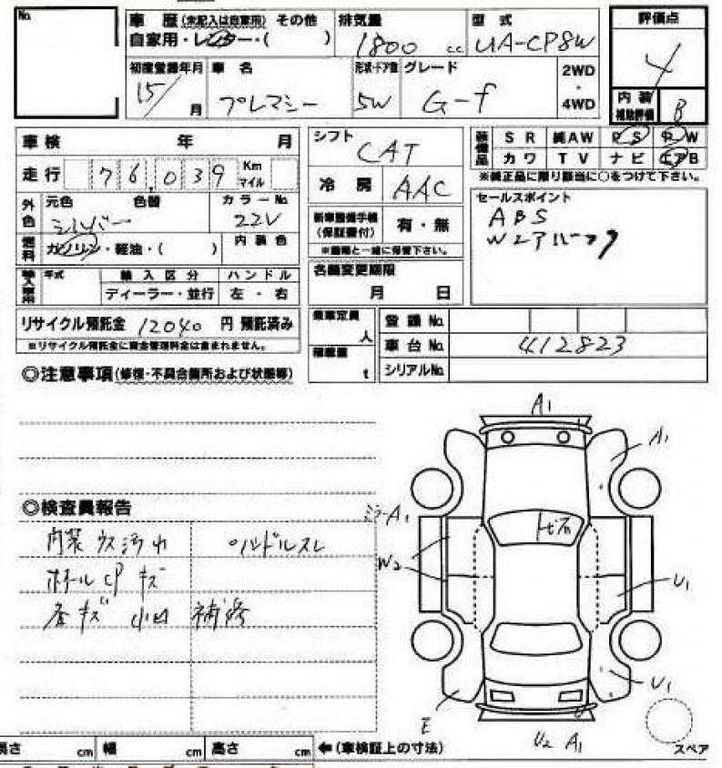 No.
車歴(未記入は自家用) その他
自家用・レンター・( )
排気量
1800 c.c.
型式
UA-CP8W
評価点
4
初度登録年月
15/ 月
車名
プレマシー
形状・ドア数
5W
グレード
G-f
2WD
・
4WD
内装
補助評価
B
車検 年 月
走行 76,039 Km
マイル
外色
元色 色替
シルバー
カラーNo.
22V
燃料
ガソリン・軽油・( )
内装色
輸入車用
年式
輸入区分
ディーラー・並行
ハンドル
左・右
リサイクル預託金 12040 円 預託済み
※リサイクル預託金に資金管理料金は含まれません。
シフト
CAT
冷房
AAC
新車整備手帳
(保証書付)
有・無
※書類と一緒に保管下さい。
名義変更期限
月 日
乗車定員
人
積載量
t
装備品
SR 純AW PS PW
カワ TV ナビ エアB
※純正品に限り該当に○をつけて下さい。
セールスポイント
ABS
Wエアバック
登録No.
車台No. 412823
シリアルNo.
◎注意事項(修復・不具合箇所および状態等)
◎検査員報告
内装ウス汚れ
ハンドルスレ
ホイールCPキズ
キズ 小凹 補修
A1
A1
ミラーA1
トビ石
W2
U1
U1
E
U
U2 A1
スペア
長さ cm 幅 cm 高さ cm ←(車検証上の寸法)